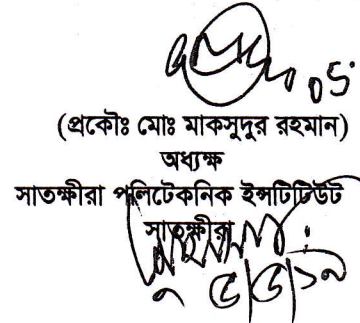 (প্রকৌঃ মোঃ মাকসুদুর রহমান)
অধ্যক্ষ
সাতক্ষীরা পলিটেকনিক ইন্সটিটিউট
সাতক্ষীরা